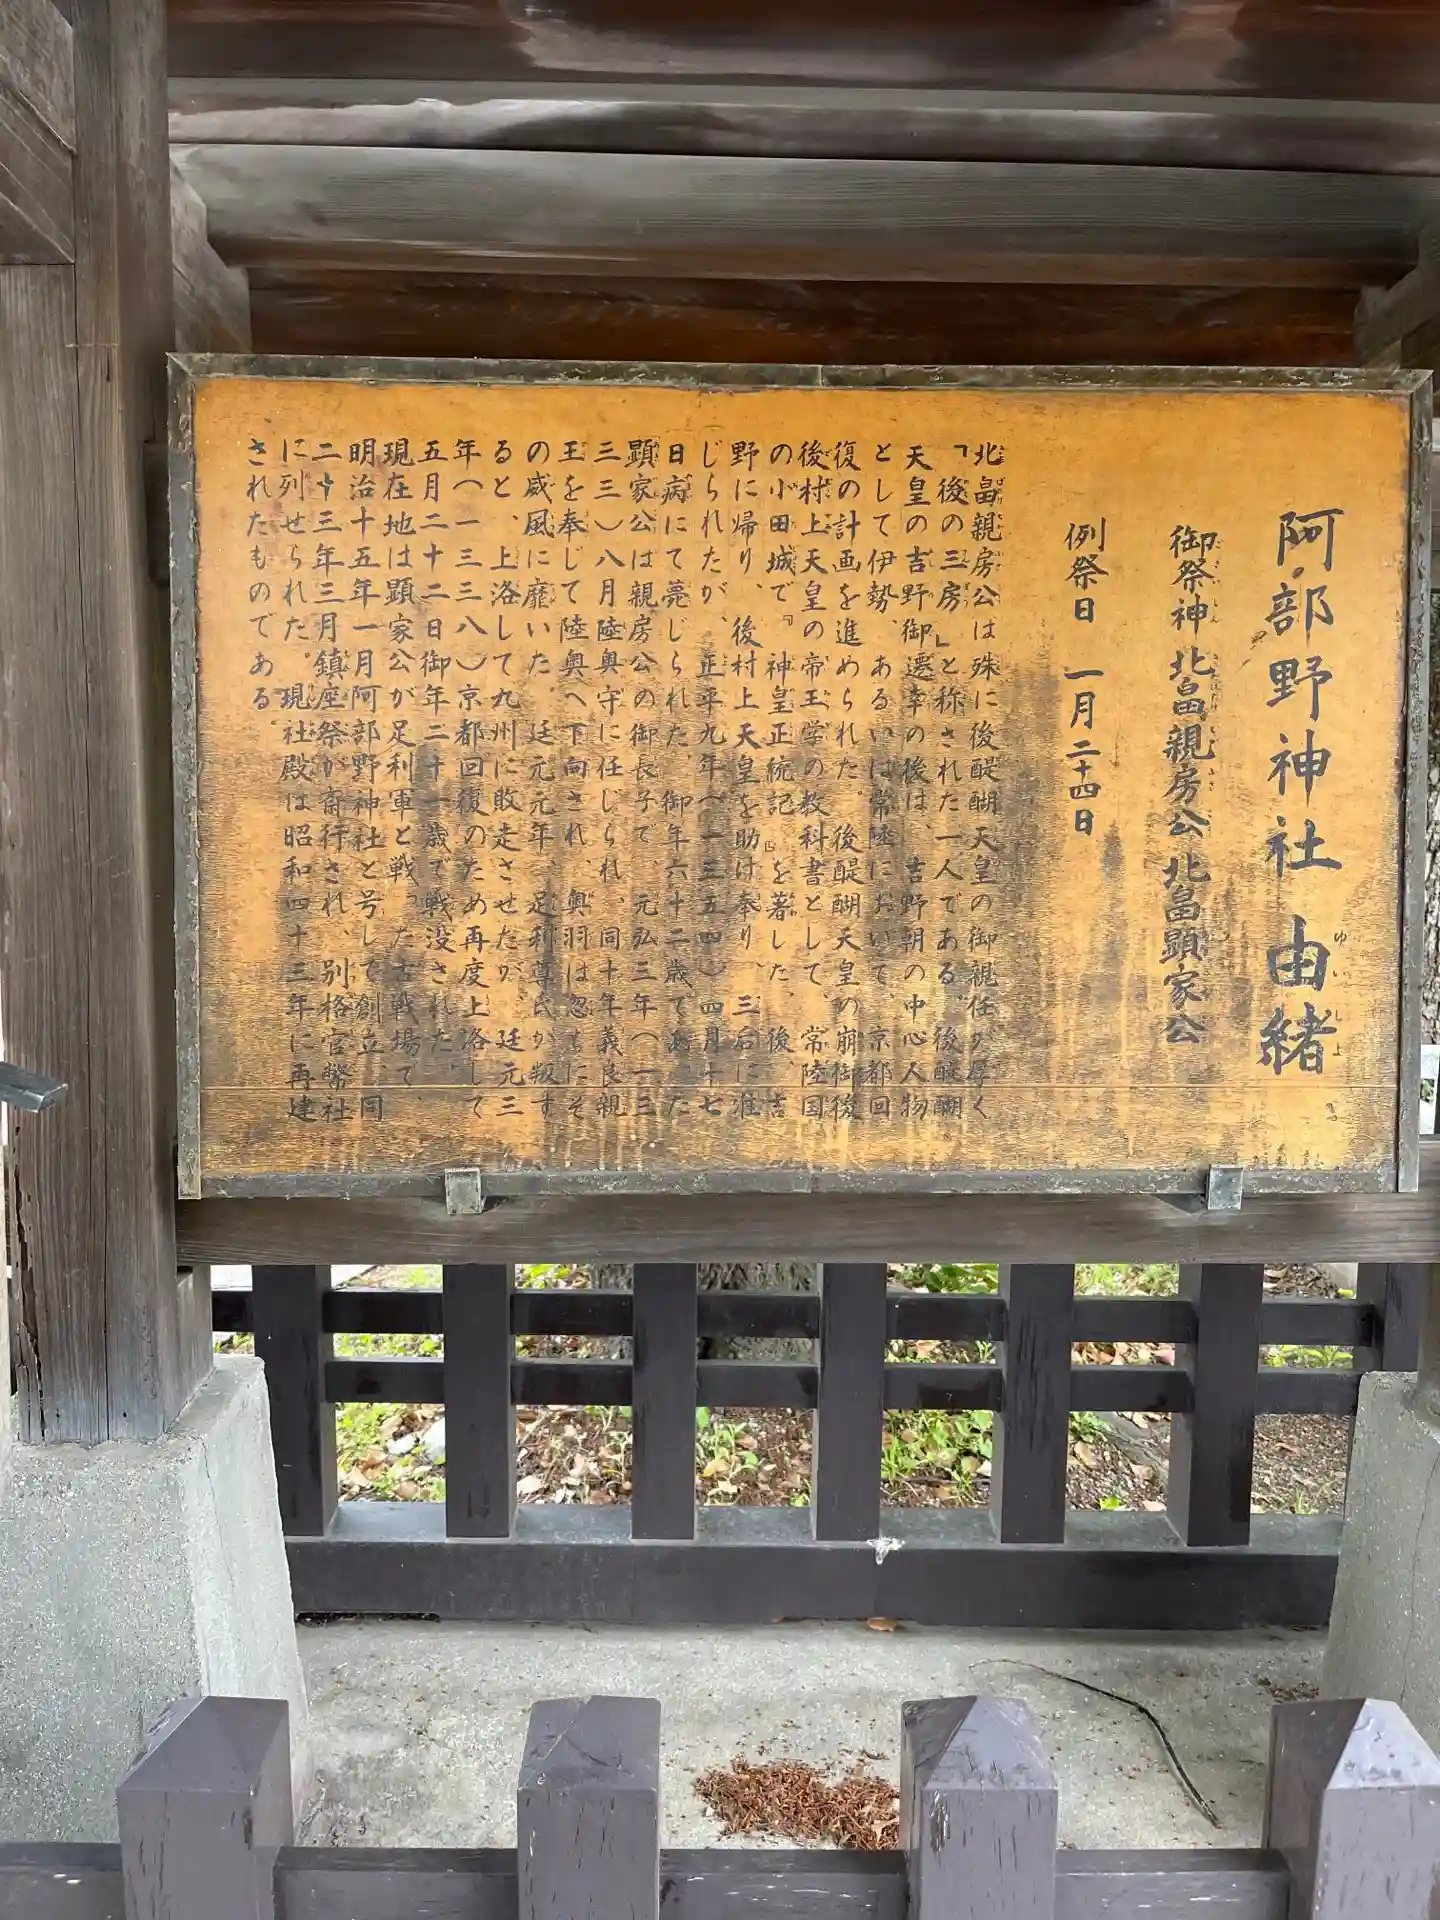 阿部野神社 由緒
御祭神 北畠親房公 北畠顕家公
例祭日 一月二十四日
北畠親房公は殊に後醍醐天皇の御親任が厚く
「後の三房」と称された一人である。後醍醐
天皇の吉野御遷幸の後は、吉野朝の中心人物
として伊勢、あるいは常陸において、京都回
復の計画を進められた。後醍醐天皇の崩御後
後村上天皇の帝王学の教科書として、常陸国
の小田城で『神皇正統記』を著した、後、吉
野に帰り、後村上天皇を助け奉り、三后に准
じられたが、正平九年(一三五四)四月十七
日病にて薨じられた、御年六十二歳であった
顕家公は親房公の御長子で、元弘三年(一三
三三)八月陸奥守に任じられ、同十年義良親
王を奉じて陸奥へ下向され、奥羽は忽ちにそ
の威風に靡いた。延元元年、足利尊氏が叛す
ると、上洛して九州に敗走させたが、延元三
年(一三三八)京都回復のため再度上洛して
五月二十二日御年二十一歳で戦没された、
現在地は顕家公が足利軍と戦った古戦場で、
明治十五年一月阿部野神社と号して創立、同
二十三年三月鎮座祭が斎行され、別格官幣社
に列せられた。現社殿は昭和四十三年に再建
されたものである。